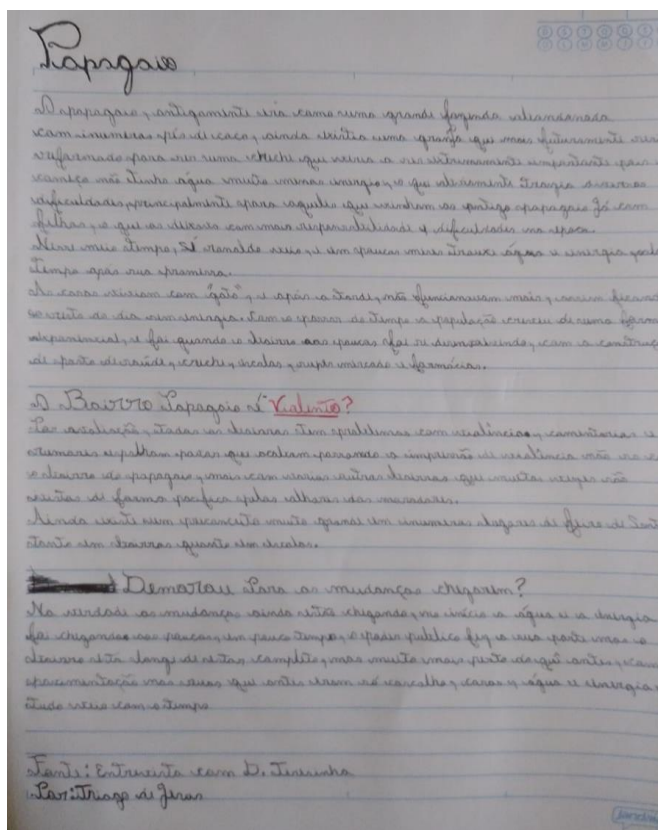 Papagaio
O papagaio, antigamente era como uma grande fazenda abandonada
com inumeros pés de coco, ainda existia uma granja que mais futuramente
reformada para ser uma creche que viria a ser extremamente importante para
começo não tinha água muito menos energia, o que obviamente trazia diversas
dificuldades, principalmente para aqueles que vinham ao antigo papagaio já com
filhos, o que os deixava com mais responsabilidade e dificuldades na época
Nesse meio tempo, Zé ronaldo veio, e em poucos meses trouxe água e energia,
tempo após sua promessa.
As casas viviam com "gato", e após a tarde, não funcionavam mais, assim ficando
o resto do dia sem energia. Com o passar do tempo a população cresceu de uma forma
exponencial, e foi quando o bairro aos poucos foi se desenvolvendo, com a construção
de posto de saúde, creche, escolas, super mercado e farmácias.
O Bairro Papagaio é Violento?
Por avaliação, todos os bairros tem problemas com violencias, comentarios e
rumores espalham-se
o bairro do papagaio, mais com varios outros bairros que muitas vezes não
vistos de forma pacifica pelos olhares dos moradores.
Ainda existe um preconceito muito grande em inumeros lugares de feira de Sant
tanto em bairros quanto em escolas.
Demorou Para as mudanças chegarem?
Na verdade as mudanças ainda estão chegando, no início a água e a energia
foi chegando aos poucos, em pouco tempo, o poder publico fez a sua parte mas o
bairro está longe de estar completo, mas muito mais perto do quê antes, com
apavimentação nas ruas que antes eram só cascalho, casas, água e energia
tudo veio com o tempo
Fonte: Entrevista com D. Terezinha
Por: Thiago de Jesus
jandaia